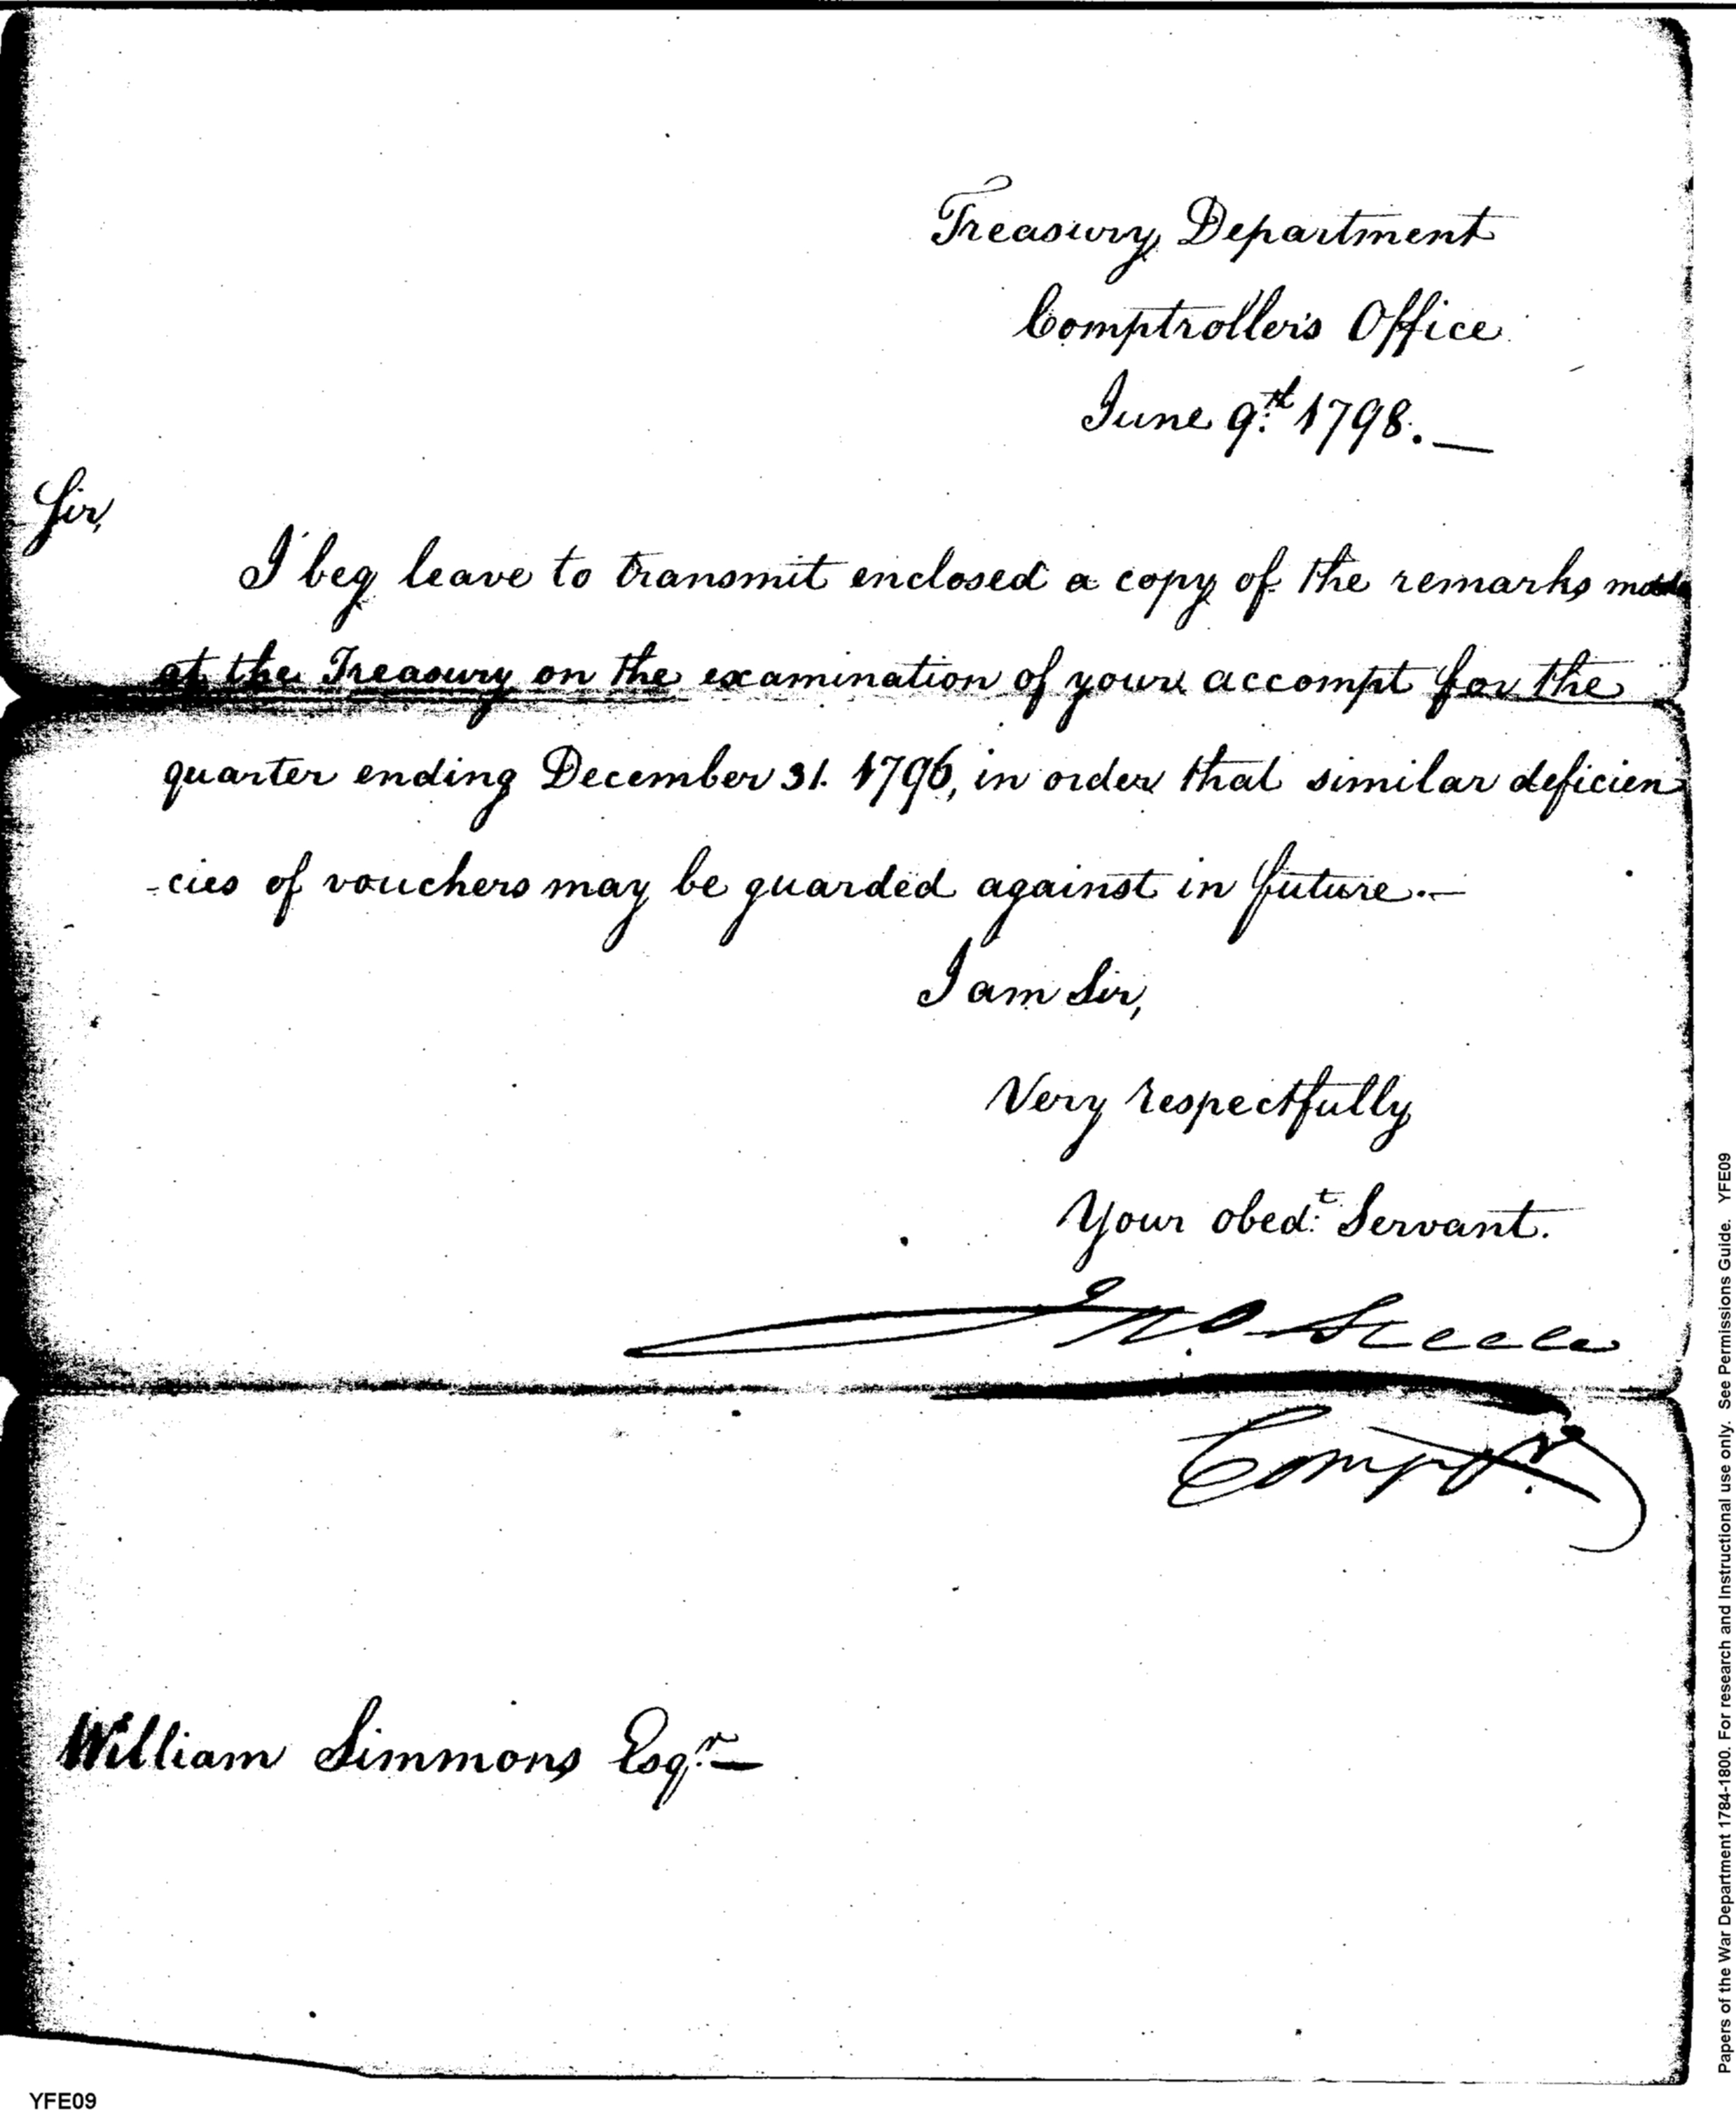 Treasury Department
Comptroller's Office
June 9th. 1798.—
Sir,
I beg leave to transmit enclosed a copy of the remarks made
at the Treasury on the examination of your accompt for the
quarter ending December 31. 1796, in order that similar deficien
-cies of vouchers may be guarded against in future.—
I am Sir,
Very respectfully
Your obedt. Servant.
Jno. Steele
Comptr.
William Simmons Esqr.—
YFE09
Papers of the War Department 1784-1800. For research and Instructional use only. See Permissions Guide. YFE09